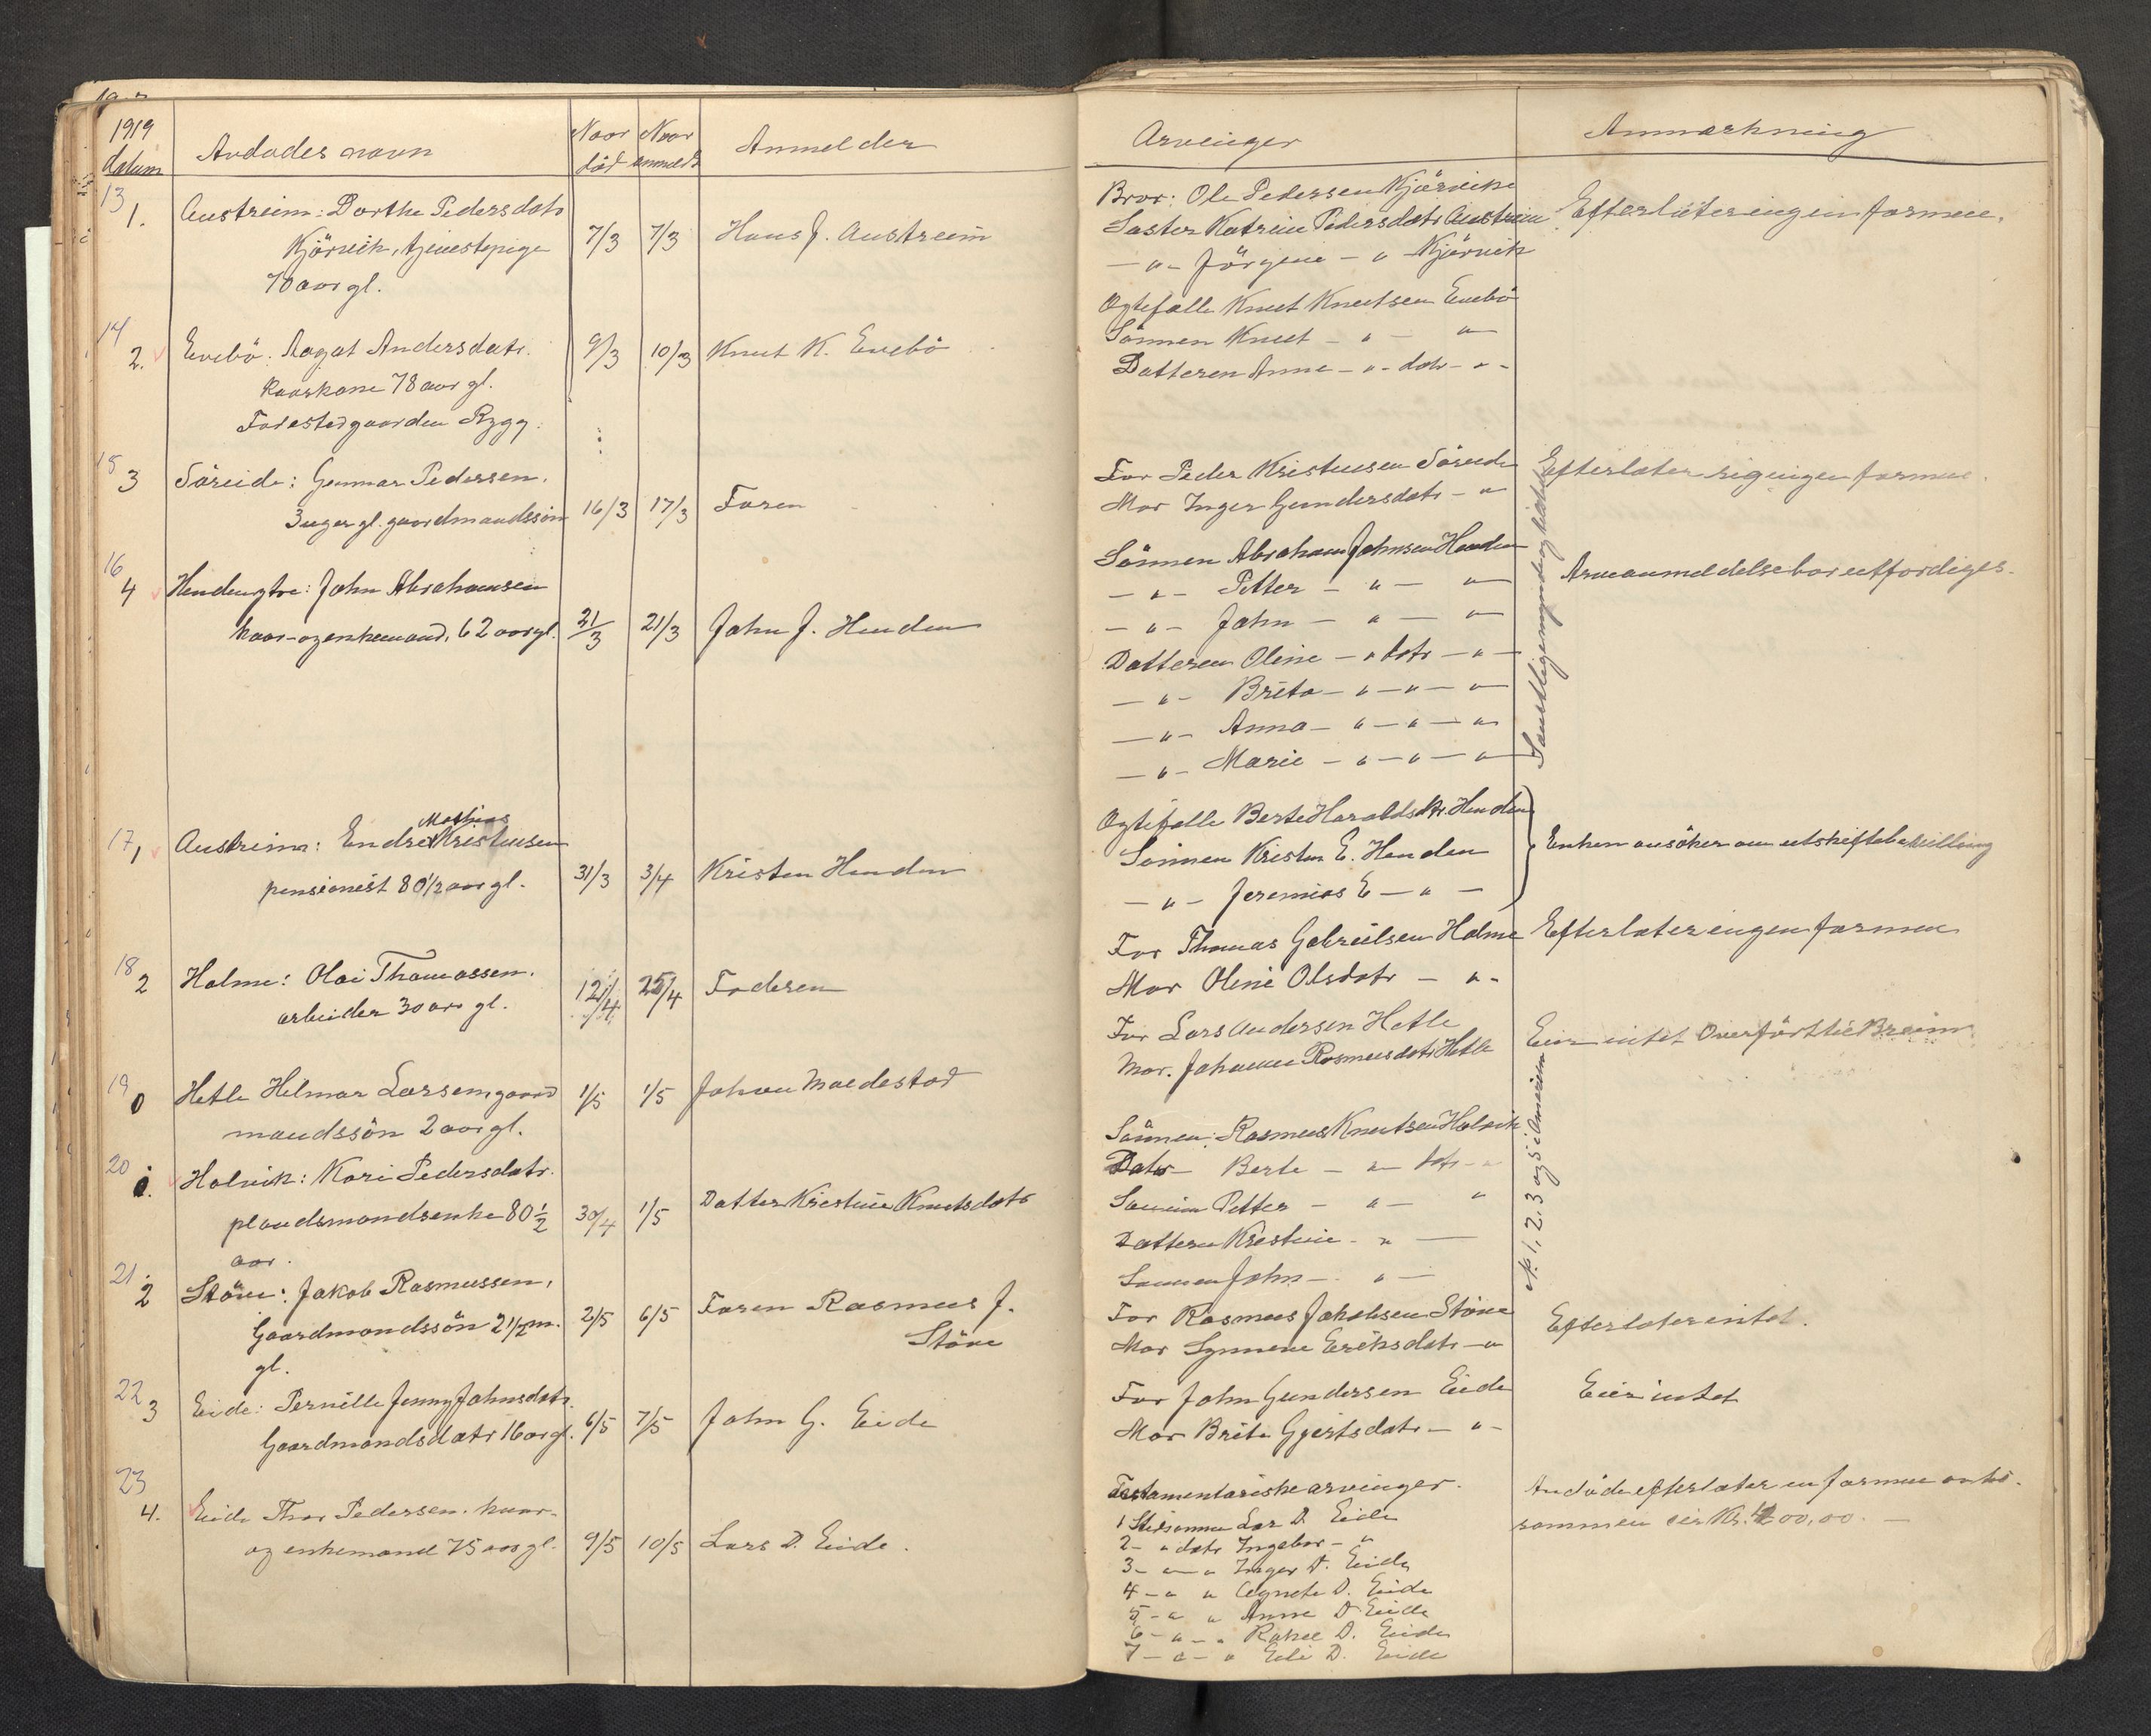 1919
datum
Avdødes navn
Naar død
Naar anmeldt
Anmelder
13
1. Austreim: Dorthe Pedersdatr
Kjörvik, tjenestepige
70 aar gl.
7/3 7/3 Hans J. Austreim
14
2. Evebö. Aagat Andersdatr.
kaarkone 78 aar gl.
Forestedgaarden Rygg.
9/3 10/3 Knut K. Evebö
15
3 Söreide: Gunnar Pedersen.
3 uger gl. gaardmandssön
16/3 17/3 Faren
16
4 Hendenytre: John Abrahamsen
kaar- og enkemand, 62 aar gl.
21/3 21/3 John J. Henden
17
1 Austreim: Endre Mathias Kristensen
pensionist 80 1/2 aar gl.
31/3 3/4 Kristen Henden
18
2 Holme: Olai Thomassen.
arbeider 30 aar gl.
12/4 25/4 Faderen
19
0 Hetle Helmar Larsen gaard
mandssön 2 aar gl.
1/5 1/5 Johan Maedestad
20
1. Holvik: Kari Pedersdatr.
plandsmandsenke 80 1/2
aar.
30/4 1/5 Datter Kristine Knutsdatr
21
2 Störe: Jakob Rasmussen,
Gaardmandssön 2 1/2 m.
gl.
2/5 6/5 Faren Rasmus J.
Störe
22
3 Eide: Pernille Jenny Johnsdatr.
Gaardmandsdatr 16 aar gl.
6/5 7/5 John G. Eide
23
4. Eide Thor Pedersen. kaar-
og enkemand 75 aar gl.
9/5 10/5 Lars D. Eide.
Arvinger
Anmerkning
Bror: Ole Pedersen Kjörvik
Søster Katrine Pedersdatr Austreim
— " — Jörgine — " Kjörvik
Efterlater ingen formue.
Ogtefelle Knut Knutsen Evebö
Sönnen Knut — " — "
Datteren Anne — " — datr — " —
Far Peder Kristensen Söreide
Mor Inger Gundersdatr — "
Efterlater sig ingen formue.
Sönnen Abraham Johnsen Henden
— " — Petter — " — "
— " — John — " — "
Datteren Oline — " datr — " —
— " — Brita — " — " — "
— " — Anna — " — " — "
— " — Marie — " — " — "
Samtlige myndige
Arveanmeldelse bør utfærdiges.
Ogtefelle Berte Haraldsdtr. Henden
Sönnen Kristen E. Henden
— " — Jeremias E — " —
Enken ansöker om utskiftebevilling
Far Thomas Gabrielsen Holme
Mor Oline Olsdatr — " —
Efterlater ingen formue
Far Lars Andersen Hetle
Mor. Johanne Rasmusdatr Hetle
Eier intet Overfört til Breim
Sönnen: Rasmus Knutsen Holvik
Datr — Berte — " — datr — "
Sönnen Petter — " — "
Datteren Kristine — " —
Sønnen John — " —
No 1, 2, 3 og 5 i Amerika
Far Rasmus Jakobsen Störe
Mor Synneve Eriksdatr — "
Efterlater intet.
Far John Gundersen Eide
Mor Brite Gjertsdatr — " —
Eier intet
Testamentariske arvinger.
1 Stedsønnen Lars D. Eide
2 — " datr Ingebor — "
3 — " — " Inger D. Eide
4 — " " Agnete D. Eide
5 — " " Anne D. Eide
6 — " — " Rakel D. Eide
7 — " — " Eli D. Eide
Avdøde efterlater en formue